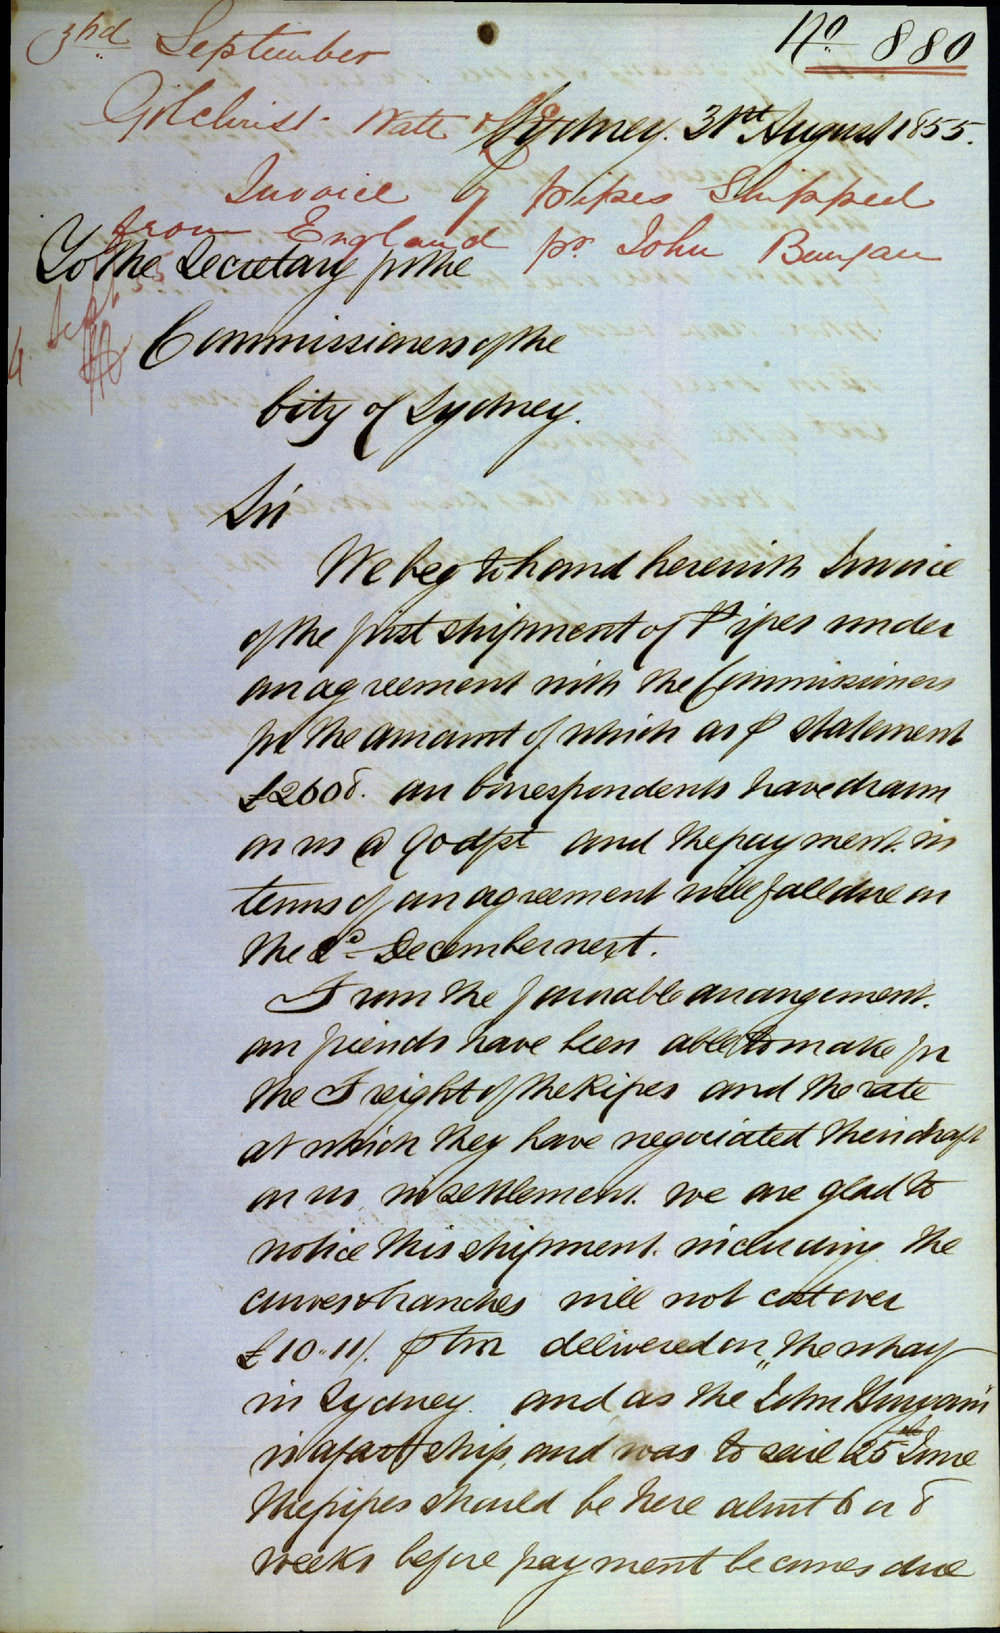 No 880
3rd September
Gilchrist Watt & Co
Sydney. 31st August 1855.
Invoice of pipes Shipped
from England pr John Bunyan
To the Secretary for the
4 Sept 55
Commissioners of the
City of Sydney.
Sir
We beg to hand herewith Invoice
of the first shipment of Pipes under
our agreement with the Commissioners
for the amount of which as p statement
£2608. our Correspondents have drawn
on us @ 90 d/st and the payment in
terms of our agreement will fall due on
the 2d December next.
From the favorable arrangement
our friends have been able to make for
the Freight of the Pipes and the rate
at which they have negociated their draft
on us in settlement we are glad to
notice this shipment including the
curves & branches will not cost over
£10.11/. p ton delivered on the wharf
in Sydney and as the "John Bunyan"
is a fast ship, and was to sail 25th June
the pipes should be here about 6 or 8
weeks before payment becomes due